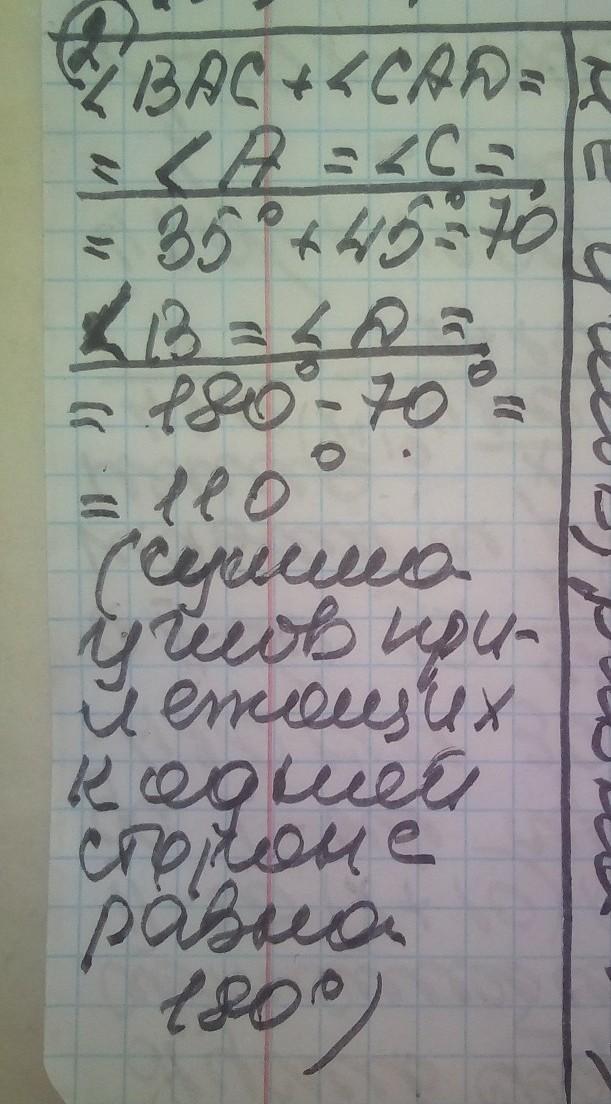 2
∠BAC + ∠CAD =
= ∠A = ∠C =
= 35° + 45° = 70°
∠B = ∠D =
= 180° - 70° =
= 110°
(сумма
углов при-
лежащих
к одной
стороне
равна
180°)